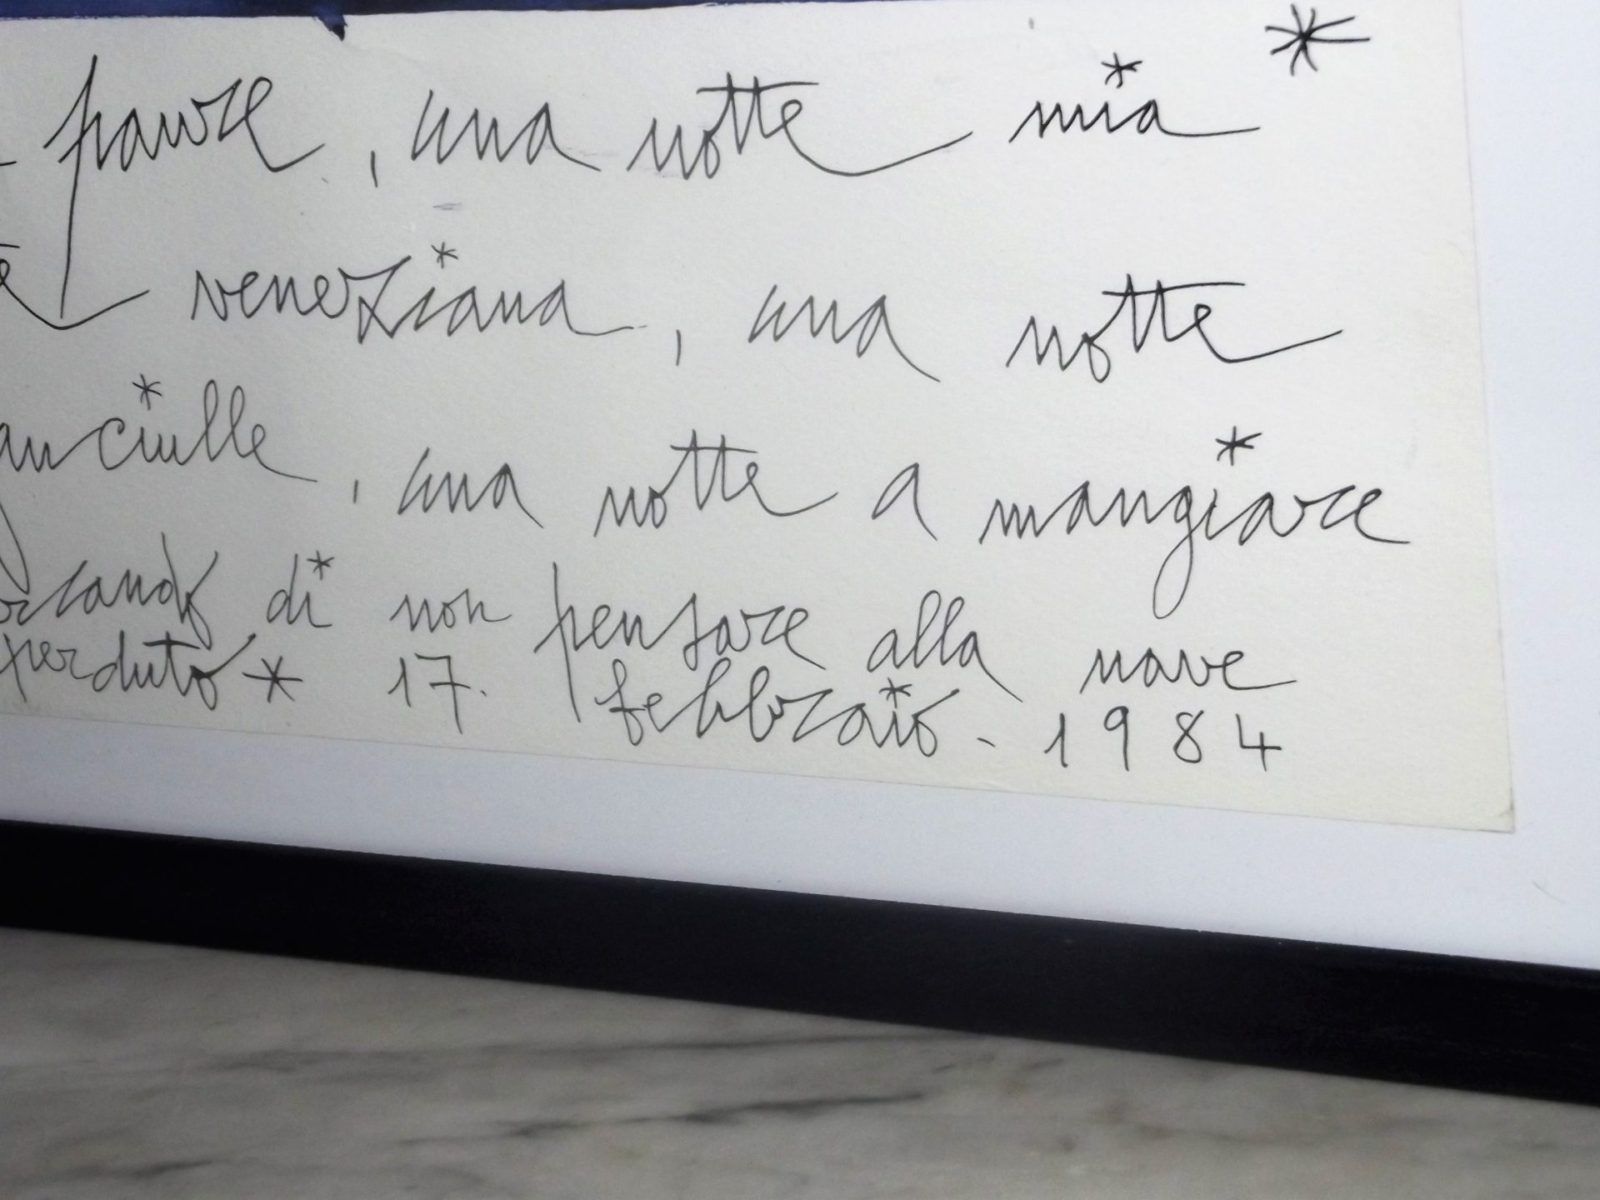 paure, una notte mia *
veneziana, una notte
anciulle, una notte a mangiare
rcando di non pensare alla nave
perduto * 17. febbraio - 1984